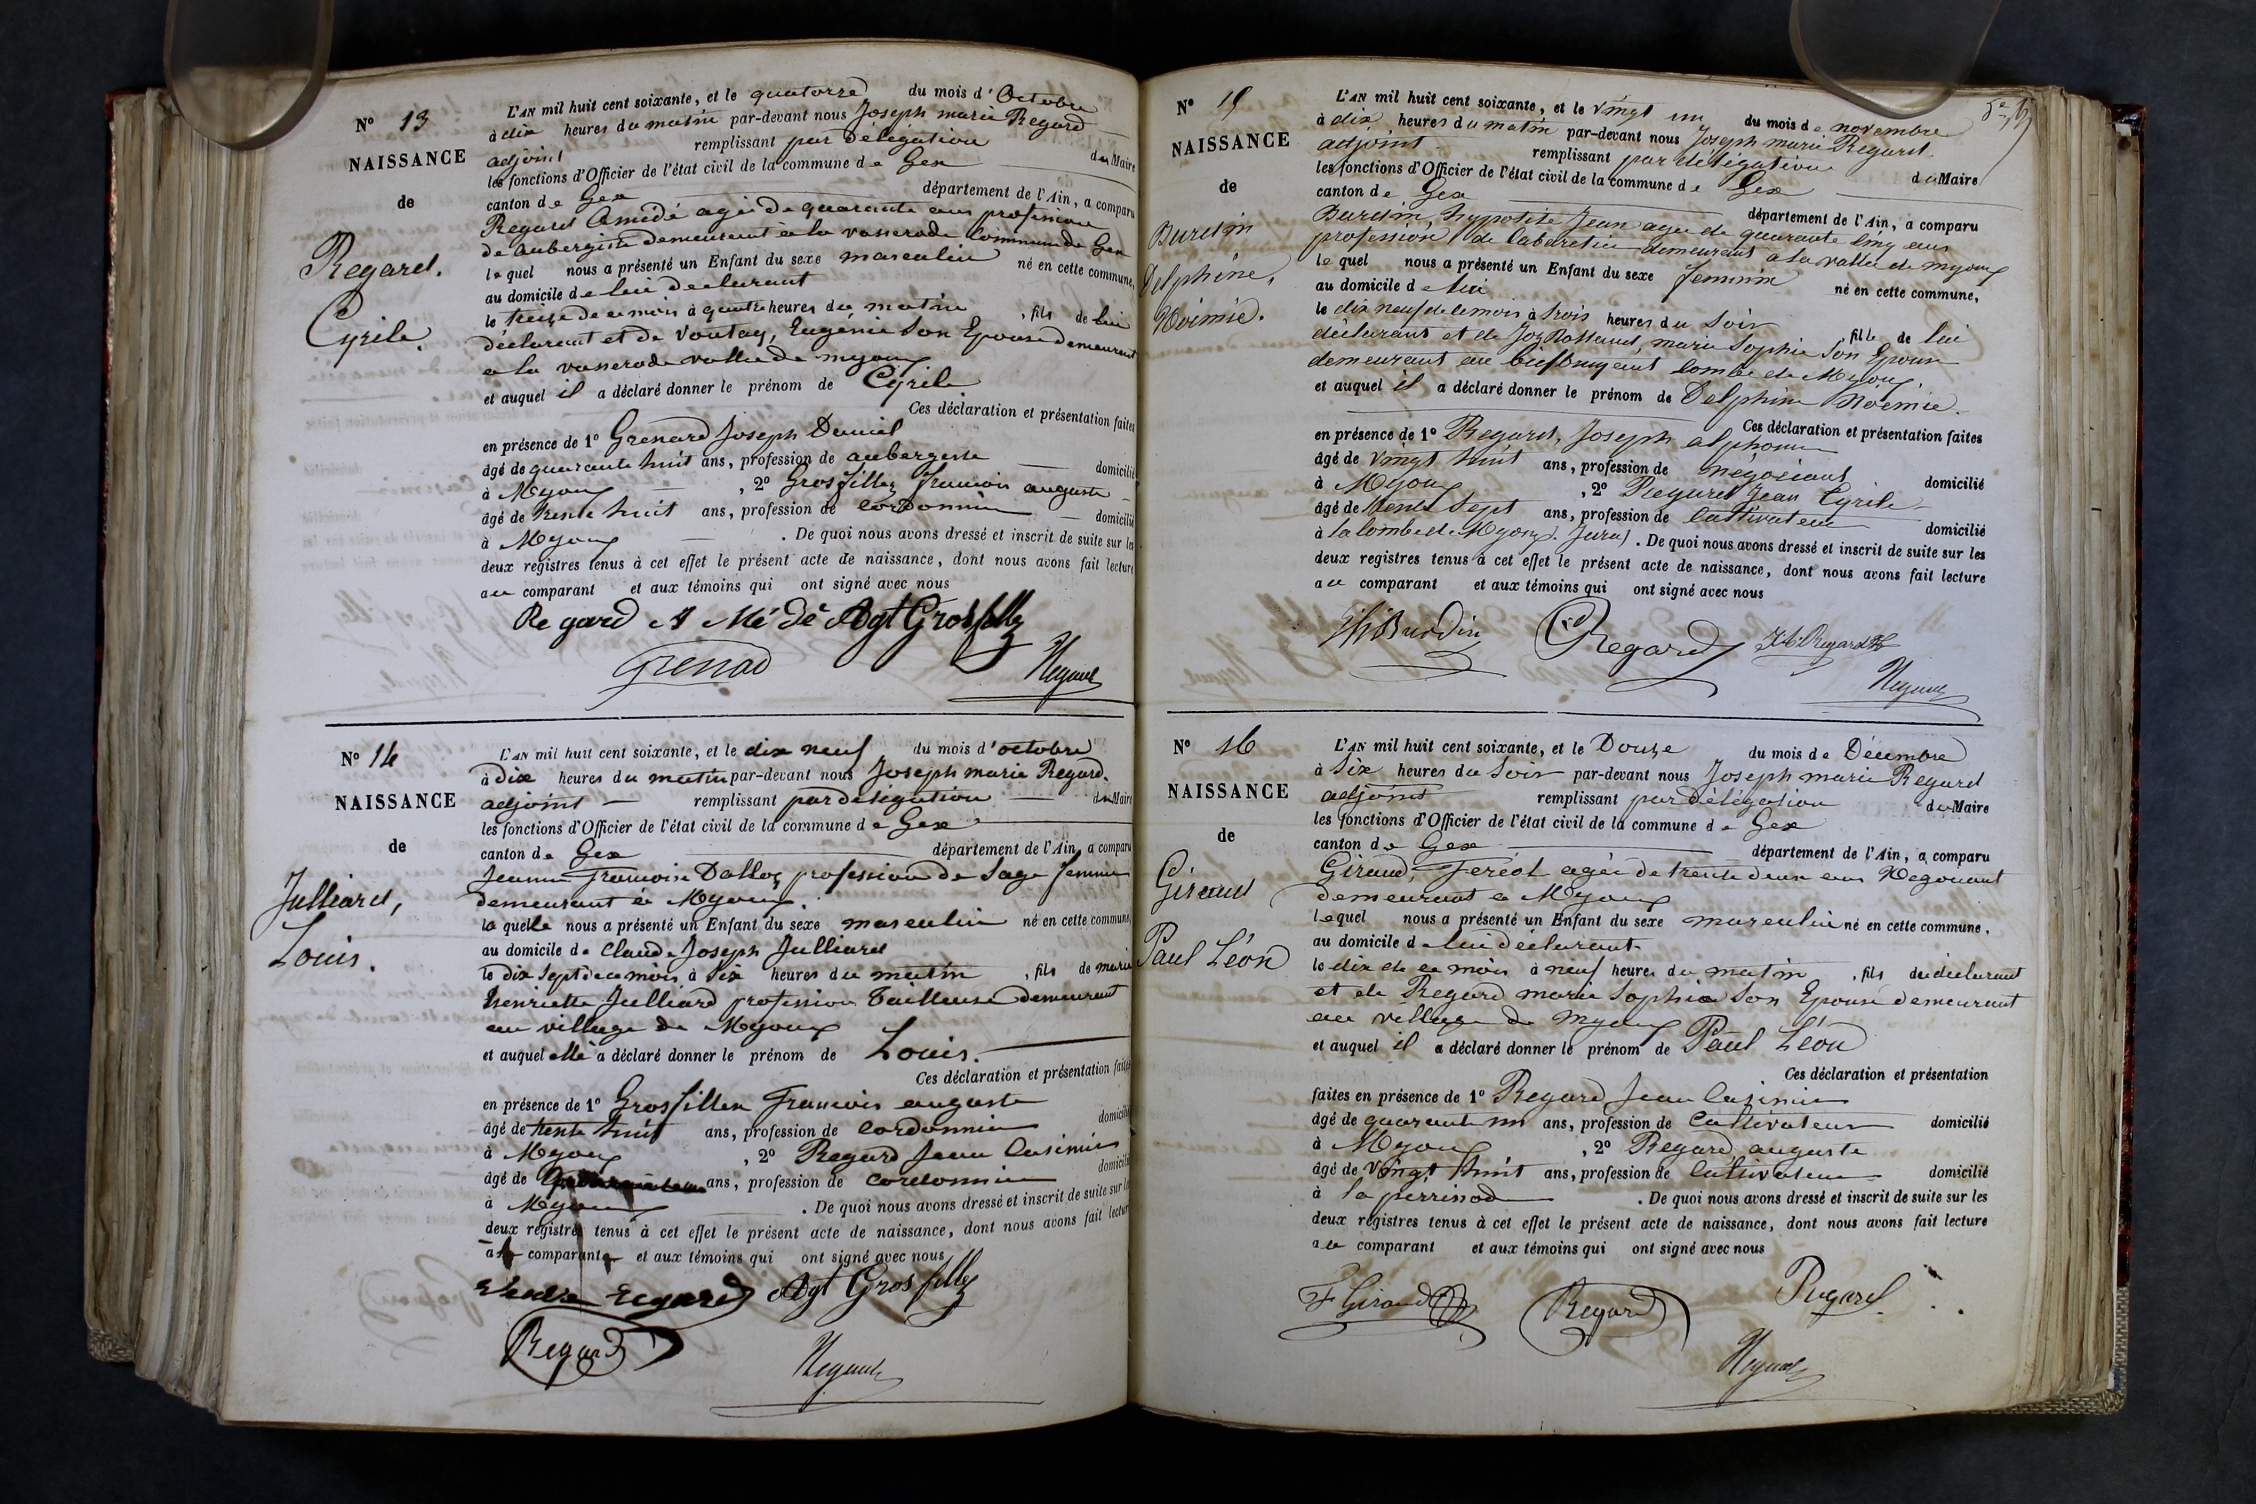 N° 13
NAISSANCE
de
Regard.
Cyrile.
L'AN mil huit cent soixante, et le quatorze du mois d'Octobre
à dix heures du matin par-devant nous Joseph marie Regard
adjoint remplissant par délégation du Maire
les fonctions d'Officier de l'état civil de la commune de Gex
canton de Gex département de l'Ain, a comparu
Regard Amédé agé de quarante ans profession
de aubergiste demeurant a la vasserode Commune de Gex
lequel nous a présenté un Enfant du sexe masculin né en cette commune,
au domicile de lui declarant
le treize de ce mois à quatre heures du matin, fils de lui
declarant et de Vontay, Eugénie son Epouse demeurant
a la vasserode vallée de myoux
et auquel il a déclaré donner le prénom de Cyrile
Ces déclaration et présentation faites
en présence de 1° Grenard Joseph Daniel
âgé de quarante huit ans, profession de aubergiste domicilié
à Myoux, 2° Grosfillez francois auguste
âgé de trente huit ans, profession de cordonnier domicilié
à Myoux. De quoi nous avons dressé et inscrit de suite sur les
deux registres tenus à cet effet le présent acte de naissance, dont nous avons fait lecture
au comparant et aux témoins qui ont signé avec nous
Regard A Mé dé Agt Grosfillez
Grenad
Regard
N° 14
NAISSANCE
de
Julliard,
Louis.
L'AN mil huit cent soixante, et le dix neuf du mois d'octobre
à Dix heures du matin par-devant nous Joseph marie Regard.
adjoint remplissant par délégation du Maire
les fonctions d'Officier de l'état civil de la commune de Gex
canton de Gex département de l'Ain, a comparu
Jeanne Francoise Dalloz profession de Sage femme
demeurant à Myoux.
laquelle nous a présenté un Enfant du sexe masculin né en cette commune,
au domicile de Claude Joseph Julliard
le dix sept de ce mois, à six heures du matin, fils de marie
henriette Julliard profession Tailleuse demeurant
au village de Myoux
et auquel elle a déclaré donner le prénom de Louis.
Ces déclaration et présentation faites
en présence de 1° Grosfillex Francois auguste
âgé de trente huit ans, profession de cordonnier domicilié
à Myoux, 2° Regard Jean Casimir
âgé de ans, profession de cordonnier domicilié
à Myoux. De quoi nous avons dressé et inscrit de suite sur les
deux registres tenus à cet effet le présent acte de naissance, dont nous avons fait lecture
à comparant et aux témoins qui ont signé avec nous
Agt Grosfillez
Regard
Regard
N° 15
NAISSANCE
de
Burdin
Delphine,
Noémie.
L'AN mil huit cent soixante, et le vingt un du mois de novembre
à dix heures du matin par-devant nous Joseph marie Regard.
adjoint remplissant par délégation du Maire
les fonctions d'Officier de l'état civil de la commune de Gex
canton de Gex département de l'Ain, a comparu
Burdin, hypolite Jean agé de quarante cinq ans
profession de Cabaretier demeurant a la vallée de myoux
lequel nous a présenté un Enfant du sexe feminin né en cette commune,
au domicile de lui
le dix neuf de ce mois à trois heures du soir fille de lui
déclarant et de marie Sophie Son Epouse
demeurant au combe de Myoux,
et auquel il a déclaré donner le prénom de Delphine Noémie.
Ces déclaration et présentation faites
en présence de 1° Regard, Joseph alphonse
âgé de vingt huit ans, profession de négociant domicilié
à Myoux, 2° Regard Jean Cyrile
âgé de trente sept ans, profession de Cultivateur domicilié
à la combe de Myoux. Jura). De quoi nous avons dressé et inscrit de suite sur les
deux registres tenus à cet effet le présent acte de naissance, dont nous avons fait lecture
au comparant et aux témoins qui ont signé avec nous
Burdin Regard Regard
Regard
N° 16
NAISSANCE
de
Giraud
Paul Léon
L'AN mil huit cent soixante, et le Douze du mois de Décembre
à Six heures du Soir par-devant nous Joseph marie Regard
adjoint remplissant par délégation du Maire
les fonctions d'Officier de l'état civil de la commune de Gex
canton de Gex département de l'Ain, a comparu
Giraud, Feréol agée de trente deux ans Négociant
demeurant a Myoux
lequel nous a présenté un Enfant du sexe masculin né en cette commune,
au domicile de lui déclarant
le dix de ce mois à neuf heures du matin, fils du déclarant
et de Regard marie Sophie Son Epouse demeurant
au village de myoux
et auquel il a déclaré donner le prénom de Paul Léon
Ces déclaration et présentation
faites en présence de 1° Regard Jean Casimir
âgé de quarante un ans, profession de Cultivateur domicilié
à Myoux, 2° Regard auguste
âgé de vingt huit ans, profession de Cultivateur domicilié
à la perrinod. De quoi nous avons dressé et inscrit de suite sur les
deux registres tenus à cet effet le présent acte de naissance, dont nous avons fait lecture
au comparant et aux témoins qui ont signé avec nous
F Giraud Regard Regard
Regard